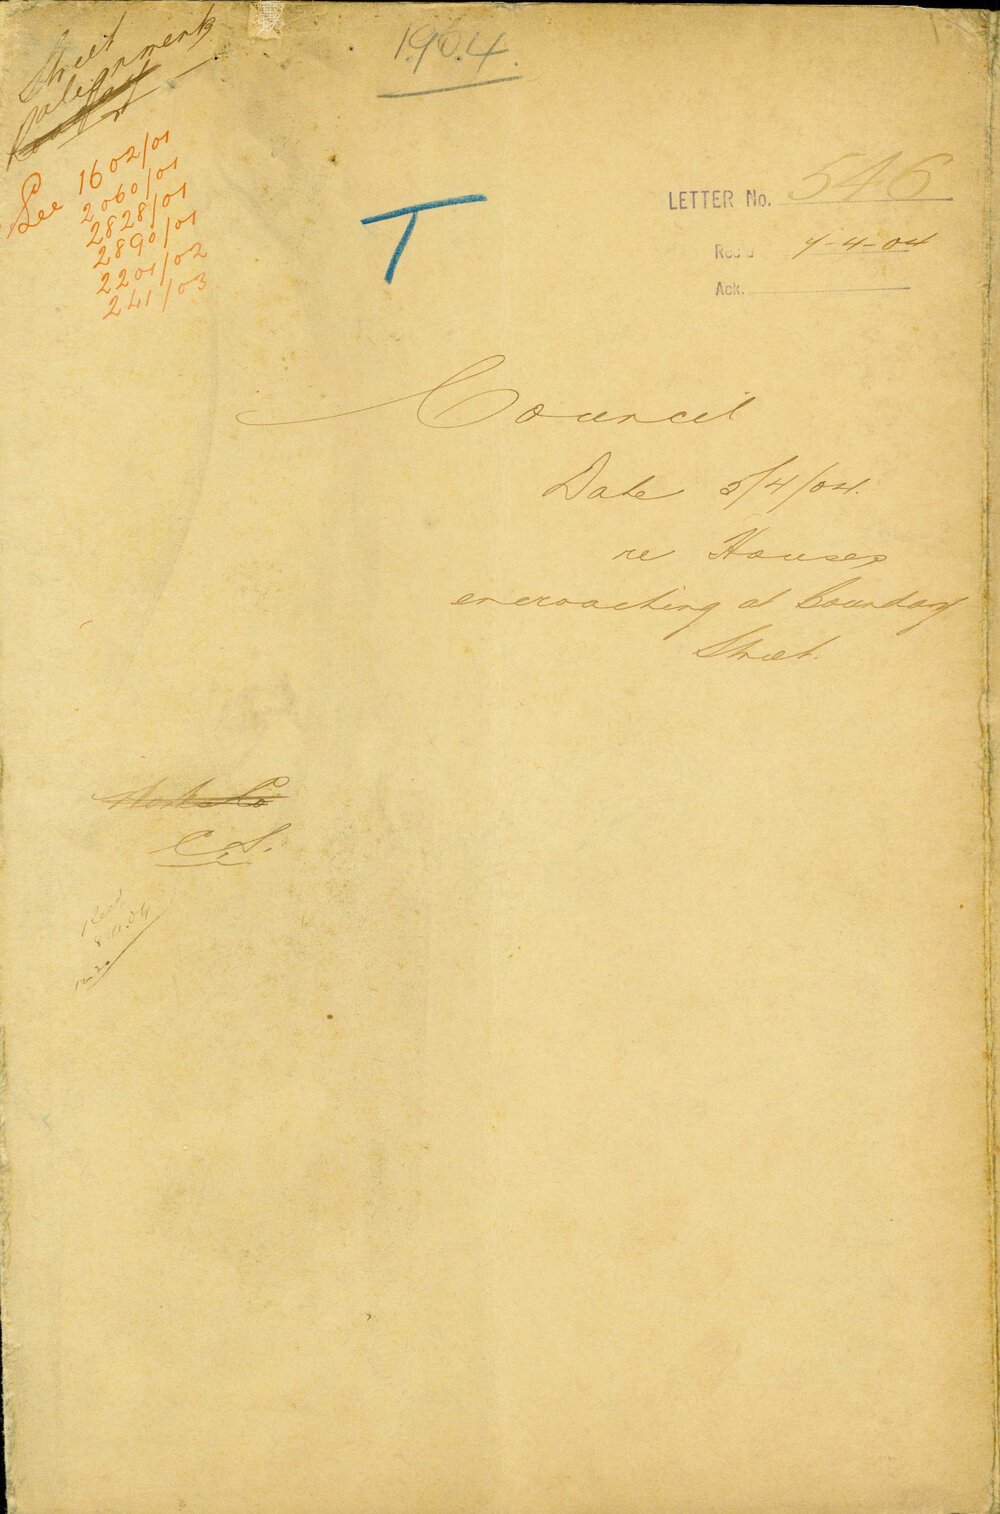 1904.
Street
alignment
See 1602/01
2060/01
2828/01
2890/01
2201/02
241/03
T
LETTER No. 546
Rec'd 7-4-04
Ack.
Council
Date 5/4/04.
re Houses
encroaching at Boundary
Street.
C S.
Recd
8.4.04